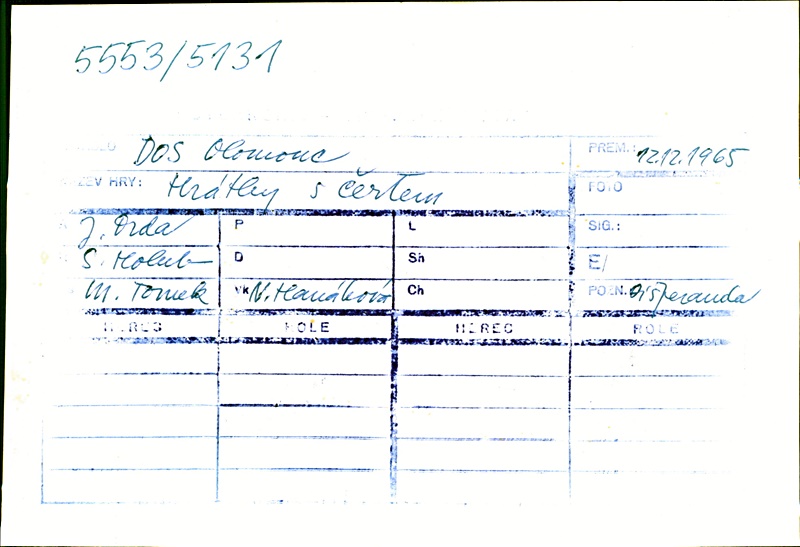 5553/5131
DOS Olomouc PREM.: 12.12.1965
ZEV HRY: Hrátky s čertem FOTO
J. Drda P L SIG.:
S. Holub D Sh E/
M. Tomek Vk N. Hanáková Ch POZN.
HEREC ROLE HEREC ROLE